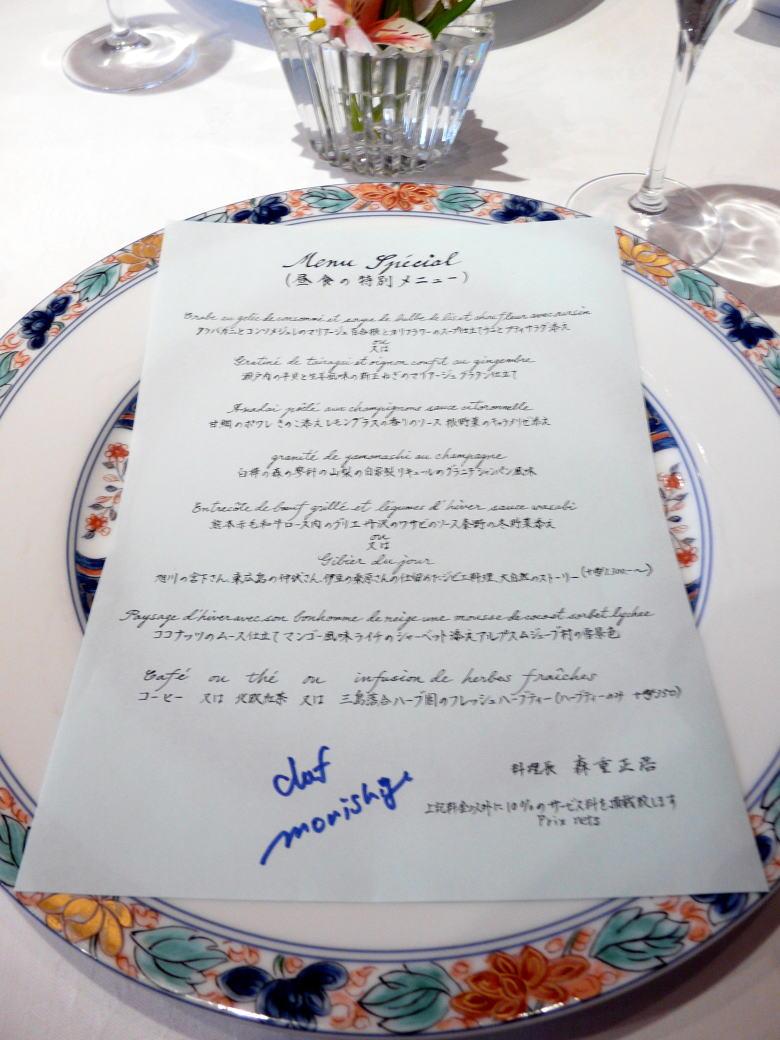 Menu Spécial
(昼食の特別メニュー)
Crabe au gelée de consommé et soupe de bulbe de lis et chou fleur avec oursin
タラバガニとコンソメジュレのマリアージュ 百合根とカリフラワーのスープ仕立てウニとプティサラダ添え
ou
又は
Gratiné de tairagai et oignon confit au gingembre
瀬戸内の平貝と生姜風味の新玉ねぎのマリアージュグラタン仕立て
Amadai poêlé aux champignons sauce citronnelle
甘鯛のポワレ きのこ添えレモングラスの香りのソース 根野菜のキャラメリゼ添え
granité de yamanashi au champagne
白樺の森の蓼科の山梨の自家製リキュールのグラニテシャンパン風味
Entrecôte de bœuf grillé et légumes d'hiver sauce wasabi
熊本赤毛和牛ロース肉のグリエ 丹沢のワサビのソース秦野の冬野菜添え
ou
又は
Gibier du jour
旭川の宮下さん、東広島の仲伏さん、伊豆の桑原さんの仕留めたジビエ料理、大自然のストーリー
Paysage d'hiver avec son bonhomme de neige une mousse de coco et sorbet lychee
ココナッツのムース仕立てマンゴー風味ライチのシャーベット添えアルプスムジェーブ村の雪景色
Café ou thé ou infusion de herbes fraîches
コーヒー 又は 北欧紅茶 又は 三島落合ハーブ園のフレッシュハーブティー(ハーブティーのみ +¥350)
chef
morishige
料理長 森重正浩
上記料金以外に10%のサービス料を頂戴致します
Prix nets